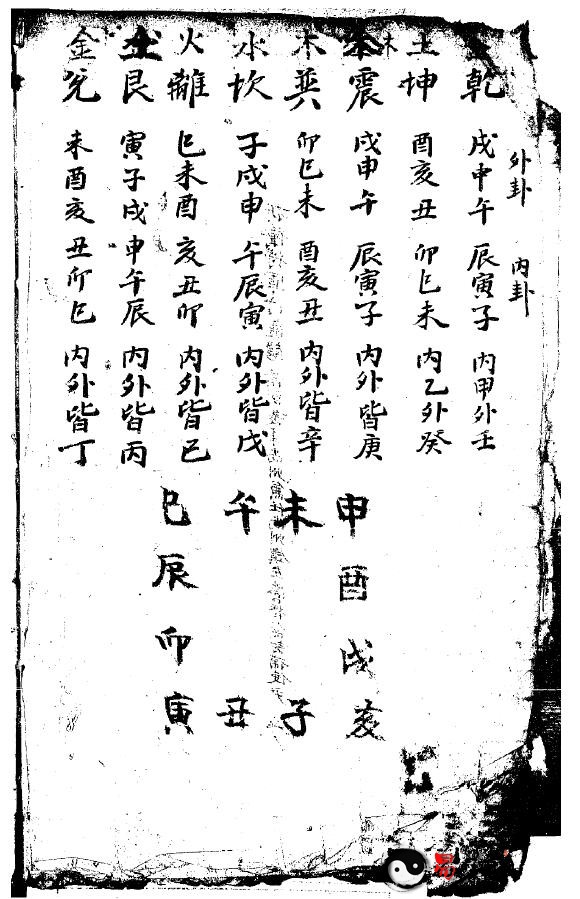 外卦 内卦
乾 戌申午 辰寅子 内甲外壬
土 坤 酉亥丑 卯巳未 内乙外癸
木 震 戌申午 辰寅子 内外皆庚
木 巽 卯巳未 酉亥丑 内外皆辛
水 坎 子戌申 午辰寅 内外皆戊
火 離 巳未酉 亥丑卯 内外皆己
土 艮 寅子戌 申午辰 内外皆丙
金 兑 未酉亥 丑卯巳 内外皆丁
申酉戌亥
未 子
午 丑
巳辰卯寅
易